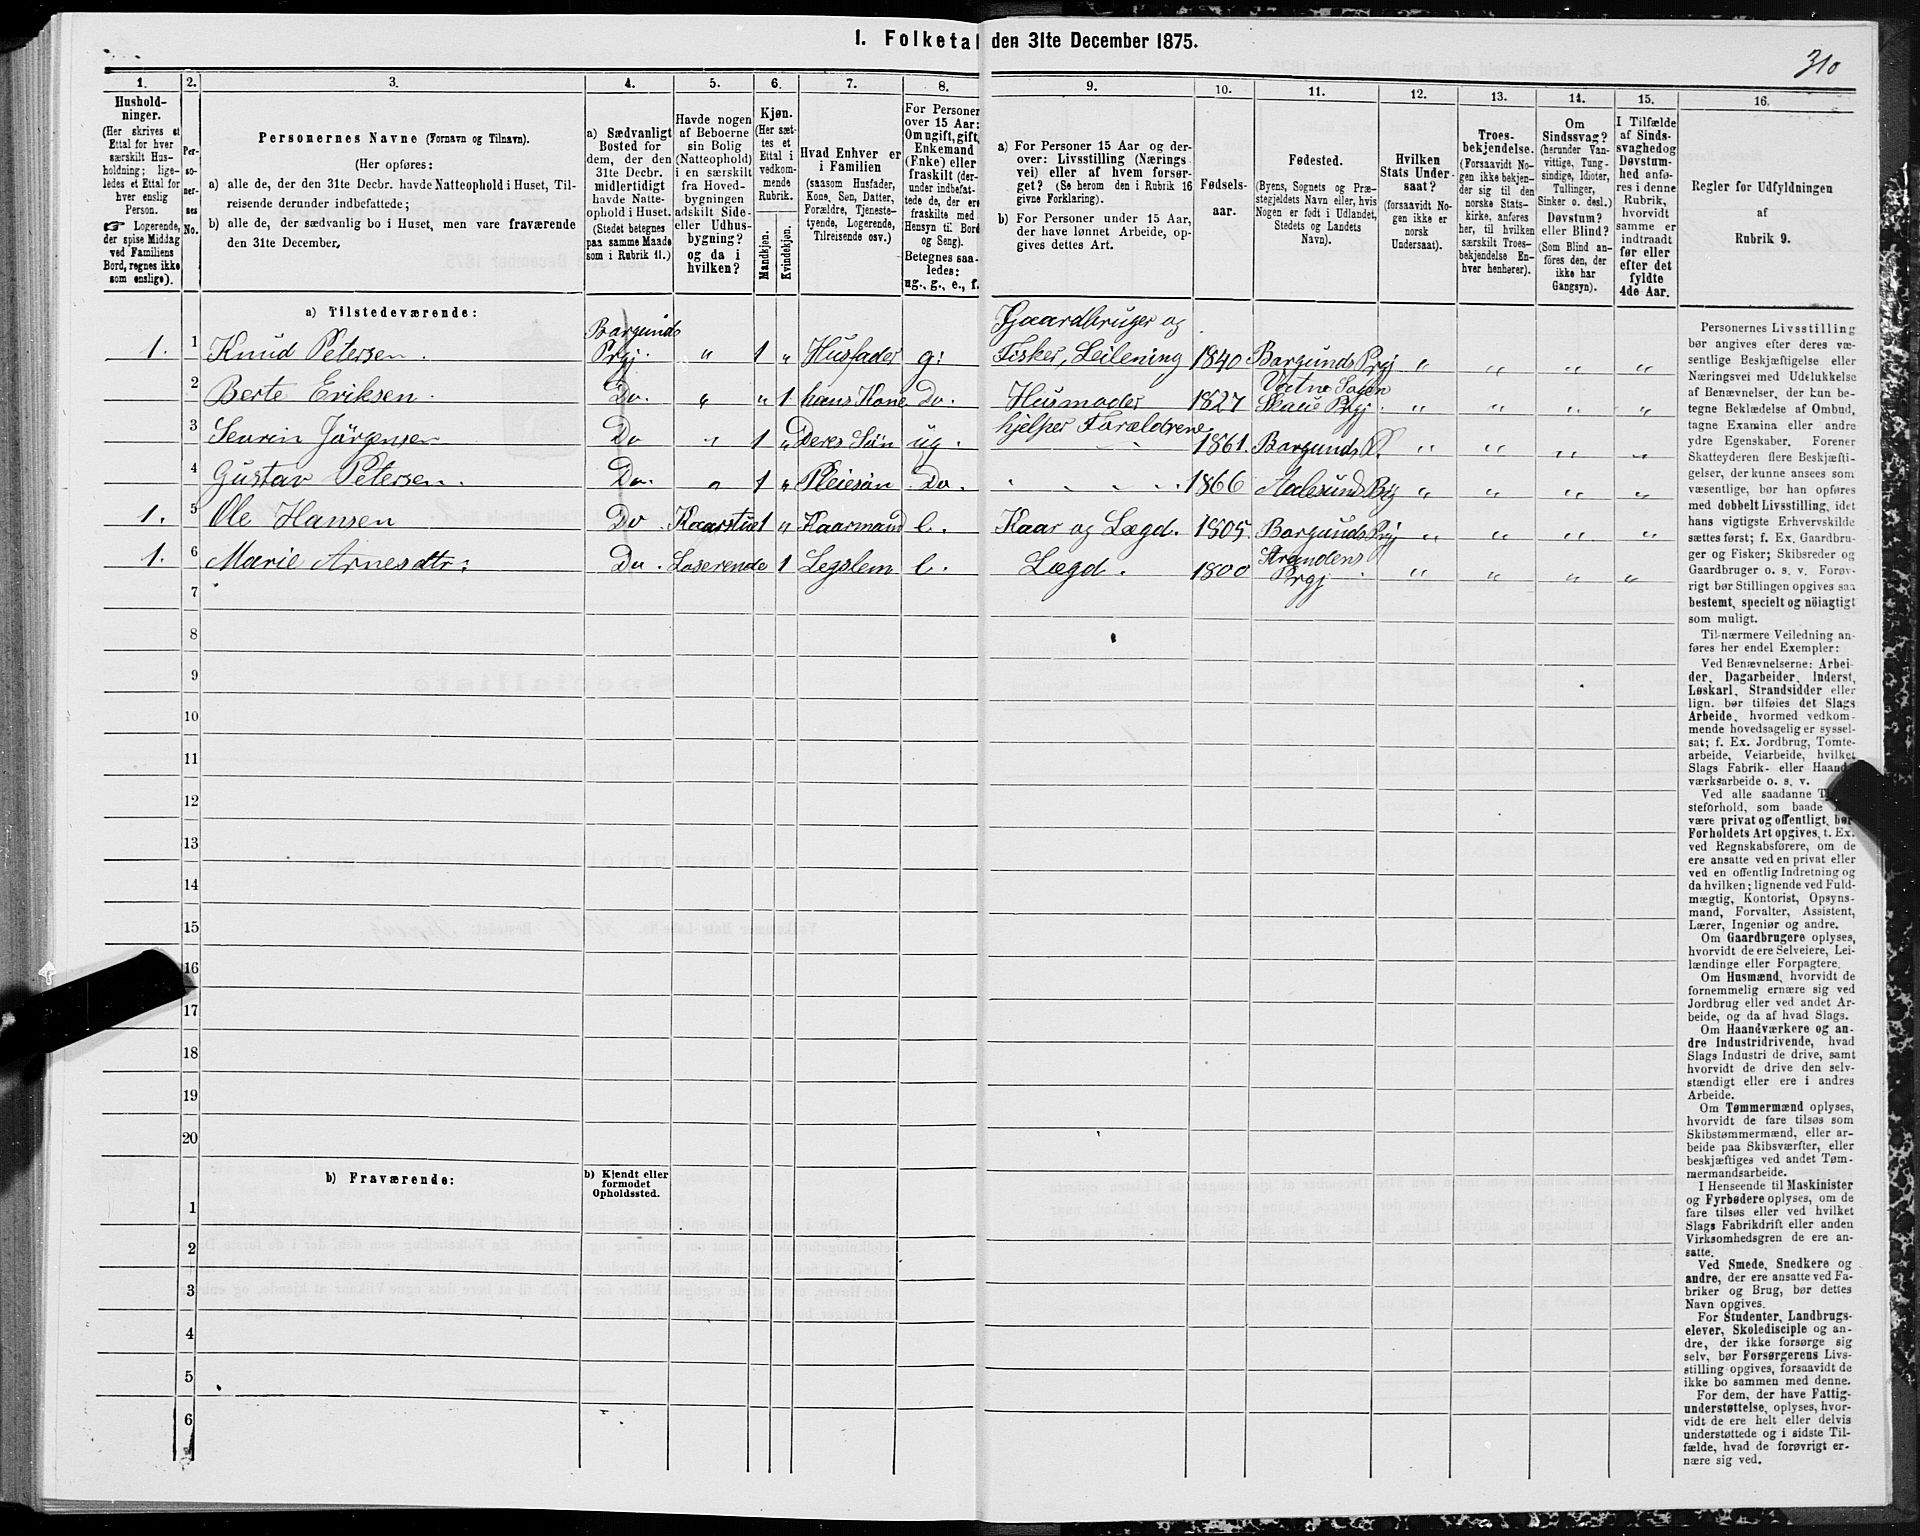 I. Folketal den 31te December 1875.
310
1.
2.
3.
4.
5.
6.
7.
8.
9.
10.
11.
12.
13.
14.
15.
16.
Hushold-
ninger.
(Her skrives et
Ettal for hver
særskilt Hus-
holdning; lige-
ledes et Ettal for
hver enslig
Person.
☞ Logerende,
der spise Middag
ved Familiens
Bord, regnes ikke
som enslige).
Per-
so-
ner-
nes
No.
Personernes Navne (Fornavn og Tilnavn).
(Her opføres:
a) alle de, der den 31te Decbr. havde Natteophold i Huset, Til-
reisende derunder indbefattede;
b) alle de, der sædvanlig bo i Huset, men vare fraværende
den 31te December.
a) Sædvanligt
Bosted for
dem, der den
31te Decbr.
midlertidigt
havde Natte-
ophold i Huset.
(Stedet betegnes
paa samme Maade
som i Rubrik 11.)
Havde nogen
af Beboerne
sin Bolig
(Natteophold)
i en særskilt
fra Hoved-
bygningen
adskilt Side-
eller Udhus-
bygning?
og da i
hvilken?
Kjøn.
(Her sæt-
tes et
Ettal i
vedkom-
mende
Rubrik.
Mandkjøn.
Kvindekjøn.
Hvad Enhver er
i Familien
(saasom Husfader,
Kone, Søn, Datter,
Forældre, Tjeneste-
tyende, Logerende,
Tilreisende osv.)
For Personer
over 15 Aar:
Om ugift, gift,
Enkemand
(Enke) eller
fraskilt (der-
under indbefat-
tede de, der ere
fraskilte med
Hensyn til Bord
og Seng).
Betegnes saa-
ledes:
ug., g., e., f.
a) For Personer 15 Aar og der-
over: Livsstilling (Nærings
vei) eller af hvem forsør-
get? (Se herom den i Rubrik 16
givne Forklaring).
b) For Personer under 15 Aar,
der have lønnet Arbeide, op-
gives dettes Art.
Fødsels-
aar.
Fødested.
(Byens, Sognets og Præ-
stegjeldets Navn eller, hvis
Nogen er født i Udlandet,
Stedets og Landets
Navn).
Hvilken
Stats Under-
saat?
(forsaavidt No-
gen ikke er
norsk
Undersaat).
Troes-
bekjendelse.
(Forsaavidt No-
gen ikke bekjen-
der sig til den
norske Stats-
kirke, anføres
her, til hvilken
særskilt Troes-
bekjendelse En-
hver henhører).
Om
Sindssvag?
(herunder Van-
vittige, Tung-
sindige, Idioter,
Tullinger,
Sinker o. desl.)
Døvstum?
eller Blind?
(Som Blind an-
føres den, der
ikke har
Gangsyn).
I Tilfælde
af Sinds-
svaghed og
Døvstum-
hed anfø-
res i denne
Rubrik,
hvorvidt
samme er
indtraadt
før eller
efter det
fyldte
4de Aar.
Regler for Udfyldningen
af
Rubrik 9.
a) Tilstedeværende:
1. 1 Knud Petersen. Borgunds Prgj. " 1 " Husfader g: Gaardbruger og Fisker, Leilening 1840 Borgunds Prgj " " " "
2 Berte Eriksen. Do. " " 1 hans Kone Do. Husmoder 1827 Vatne Sogen Skaue Prgj. " " " "
3 Sevrin Jörgensen Do " 1 " Deres Sön ug. hjelper Forældrene 1861. Borgunds P. " " " "
4 Gustav Petersen. Do. " 1 " Pleiesön Do. " " " " 1866 Aalesund By " " " "
1. 5 Ole Hansen Do. Kaarstue 1 " Kaarmand e. Kaar og Lægd. 1805 Borgunds Prgj " " " "
1. 6 Marie Arnesdtr: Do. Loserende 1 Legslem e. Lægd. 1800 Strandens Prgj. " " " "
7
8
9
10
11
12
13
14
15
16
17
18
19
20
b) Fraværende:
b) Kjendt eller
formodet
Opholdssted.
1
2
3
4
5
6
Personernes Livsstilling
bør angives efter deres væ-
sentlige Beskjæftigelse eller
Næringsvei med Udelukkelse
af Benævnelser, der kun be-
tegne Beklædelse af Ombud,
tagne Examina eller andre
ydre Egenskaber. Forener
Skatteyderen flere Beskjæfti-
gelser, der kunne ansees som
væsentlige, bør han opføres
med dobbelt Livsstilling, idet
hans vigtigste Erhvervskilde
sættes først; f. Ex. Gaardbru-
ger og Fisker; Skibsreder og
Gaardbruger o. s. v. Forøv-
rigt bør Stillingen opgives saa
bestemt, specielt og nöiagtigt
som muligt.
Til nærmere Veiledning an-
føres her endel Exempler:
Ved Benævnelserne: Arbei-
der, Dagarbeider, Inderst,
Løskarl, Strandsidder eller
lign. bør tilføies det Slags
Arbeide, hvormed vedkom-
mende hovedsagelig er syssel-
sat; f. Ex. Jordbrug, Tomte-
arbeide, Veiarbeide, hvilket
Slags Fabrik- eller Haand-
værksarbeide o. s. v.
Ved alle saadanne Tjene-
steforhold, som baade kan
være privat og offentligt, bør
Forholdets Art opgives, t. Ex.
ved Regnskabsførere, om de
ere ansatte ved en privat eller
ved en offentlig Indretning og
da hvilken; lignende ved Fuld-
mægtig, Kontorist, Opsyns-
mand, Forvalter, Assistent,
Lærer, Ingeniør og andre.
Om Gaardbrugere oplyses,
hvorvidt de ere Selveiere, Lei-
lændinge eller Forpagtere.
Om Husmænd, hvorvidt de
fornemmelig ernære sig ved
Jordbrug eller ved andet Ar-
beide, og da af hvad Slags.
Om Haandværkere og an-
dre Industridrivende, hvad
Slags Industri de drive, samt
hvorvidt de drive den selv-
stændigt eller ere i andres
Arbeide.
Om Tømmermænd oplyses,
hvorvidt de fare tilsøs som
Skibstømmermænd, eller ar-
beide paa Skibsværfter, eller
beskjæftiges ved andet Tøm-
mermandsarbeide.
I Henseende til Maskinister
og Fyrbødere oplyses, om de
fare tilsøs eller ved hvilket
Slags Fabrikdrift eller anden
Virksomhedsgren de ere an-
satte.
Ved Smede, Snedkere og
andre, der ere ansatte ved Fa-
briker og Brug, bør dettes
Navn opgives.
For Studenter, Landbrugs-
elever, Skoledisciple og an-
dre, der ikke forsørge sig
selv, bør Forsørgerens Livs-
stilling opgives, forsaavidt de
ikke bo sammen med denne.
For dem, der have Fattig-
understøttelse, oplyses, hvor-
vidt de ere helt eller delvis
understøttede og i sidste Til-
fælde, hvad de forøvrigt er-
nære sig ved.